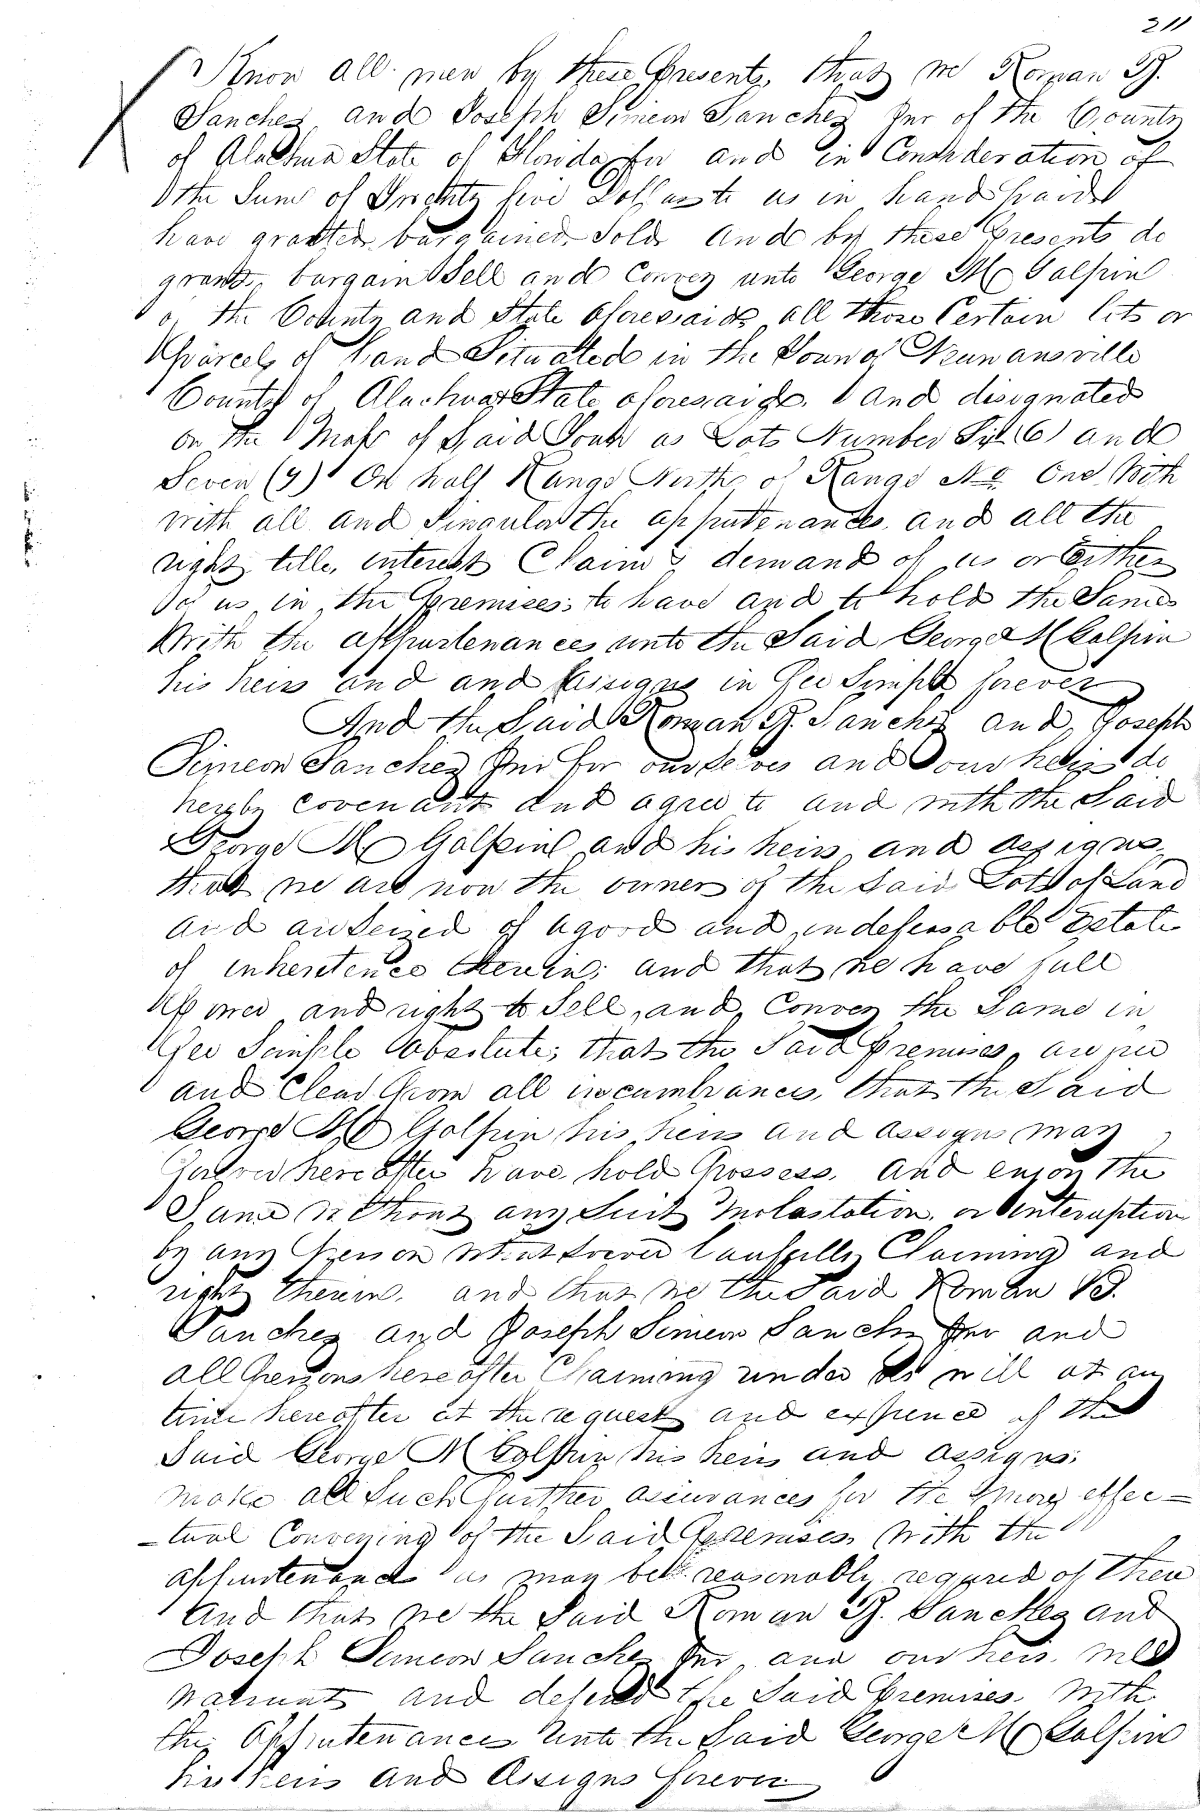 211
Know all men by these presents, that we Roman B.
Sanchez and Joseph Simeon Sanchez Jnr of the County
of Alachua State of Florida for and in Consideration of
the Sum of Twenty five Dollars to us in hand paid
have granted, bargained, Sold and by these presents do
grant, bargain Sell and Convey unto George McGalpin
of the County and State aforesaid, all those Certain lots or
parcels of land Situated in the Town of Newnansville
County of Alachua & State aforesaid, and designated
on the Map of Said Town as Lots Number Six (6) and
Seven (7) On half Range North of Range No One With
with all and Singular the appurtenances and all the
right title, interest Claim & demand of us or Either
of us, in, the premises; to have and to hold the Same
With the appurtenances unto the Said George McGalpin
his heirs and and Assigns in Fee Simple forever
And the Said Roman B. Sanchez and, Joseph
Simeon Sanchez Jnr for ourselves and our heirs do
hereby covenant and agree to and with the Said
George Mc Galpin and his heirs, and assigns,
that we are now the owners of the Said Lots of Land
and are Seized of a good and indefeasable Estate
of inheretence therein; and that we have full
power and right to Sell, and, Convey the Same in
Fee Simple Absolute; that the Said premises, are free
and Clear from all incumbrances, that the Said
George Mc Galpin his heirs and assigns may
forever hereafter have, hold possess, and enjoy the
Same without any Suit Molastation, or interuption
by any person Whatsoever lawfully Claiming and
right therein. and that we the Said Roman B.
Sanchez and Joseph Simeon Sanchez Jnr and
all persons hereafter Claiming under us will at any
time hereafter at the request and expence of the
Said George McGalpin his heirs and assigns;
make all Such further assurances for the more effec=
=tual Conveying of the Said premises, With the
appurtenances as may be reasonably requred of them
And that we the Said Roman B. Sanchez and
Joseph Simeon Sanchez Jnr, and our heirs will
warrant and defend the Said premises. With
the Appurtenances Unto the Said George Mc Galpin
his heirs and Assigns forever